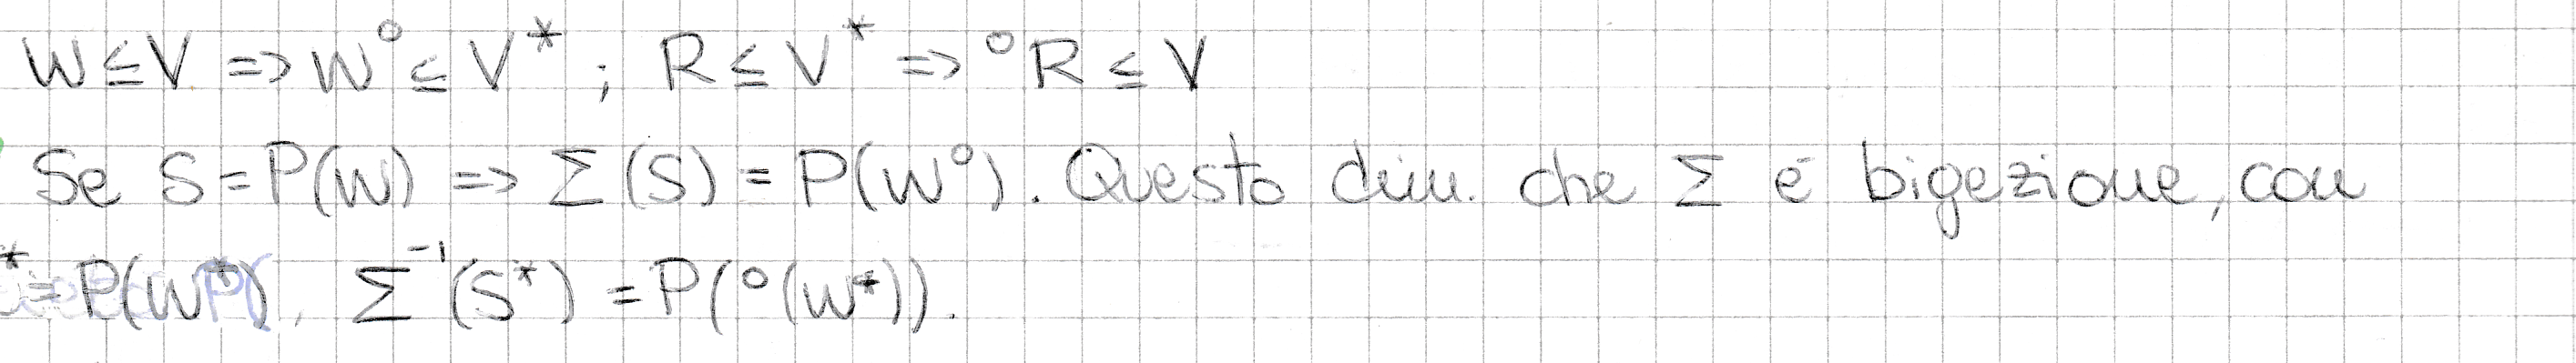 W ≤ V => W° ≤ V* ; R ≤ V* => °R ≤ V
Se S = P(W) => Σ(S) = P(W°). Questo dim. che Σ é bigezione, con
* = P(W*), Σ⁻¹(S*) = P(°(W*)).